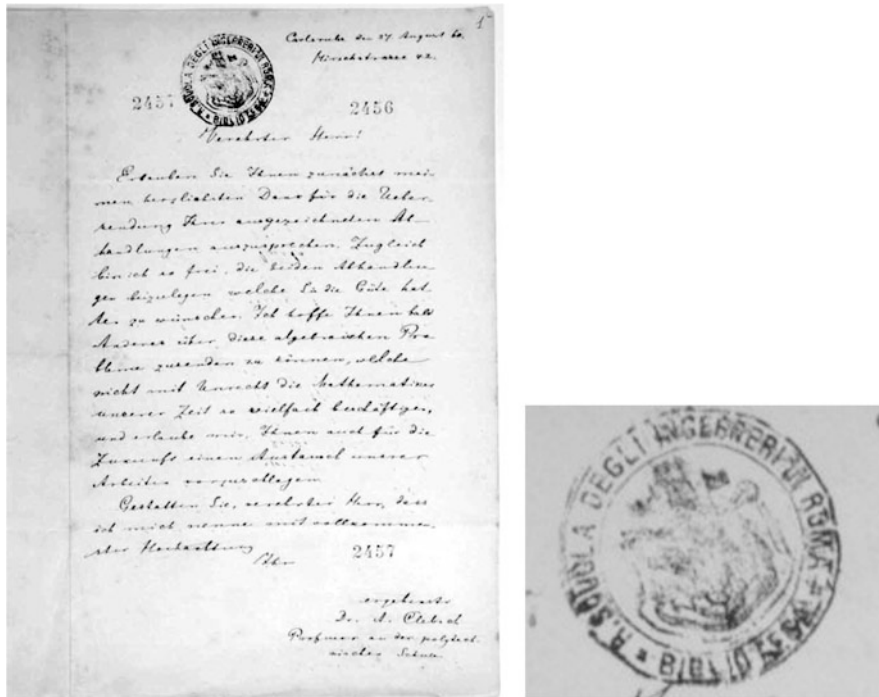 1
Carlsruhe den 27 August
R. SCUOLA DEGLI INGEGNERI DI ROMA
2457 2456
Verehrter Herr!
Erlauben Sie Ihnen zunächst mei-
nen herzlichsten Dank für die Ueber-
sendung Ihrer ausgezeichneten Ab-
handlungen auszusprechen. Zugleich
bin ich so frei, die beiden Abhandlun-
gen beizulegen welche Sie die Güte hat-
ten zu wünschen. Ich hoffe Ihnen bald
Anderes über diese algebraischen Pro-
bleme zusenden zu können, welche
nicht mit Unrecht die Mathematiker
unserer Zeit so vielfach beschäftigen,
und erlaube mir, Ihnen auch für die
Zukunft einen Austausch unserer
Arbeiten vorzuschlagen.
Gestatten Sie, verehrter Herr, dass
ich mich nenne mit vollkommen-
ster Hochachtung
Ihr 2457
ergebenster
Dr. A. Clebsch
Professor an der polytech-
nischen Schule
R. SCUOLA DEGLI INGEGNERI DI ROMA